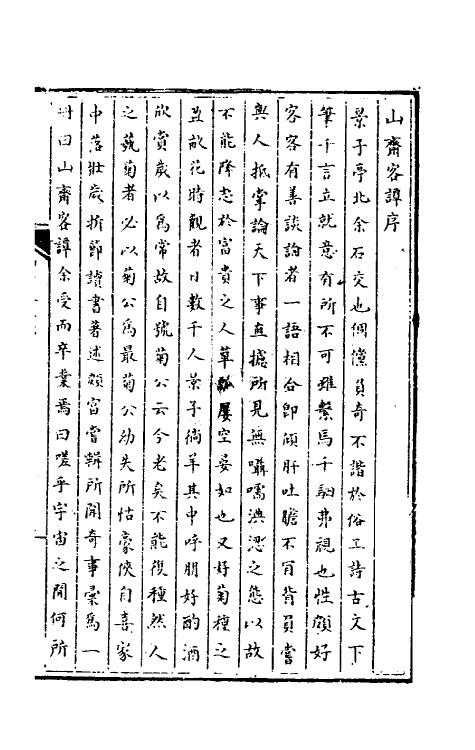 山齋客譚序
景子亭北余石交也倜儻負奇不諧於俗工詩古文下
筆千言立就意有所不可雖繫馬千駟弗視也性顧好
客客有善談論者一語相合即傾肝吐膽不肯背負嘗
與人抵掌論天下事直攄所見無囁嚅淟涊之態以故
不能降志於富貴之人簞瓢屢空晏如也又好菊種之
盈畝花時觀者日數千人景子徜羊其中呼朋好酌酒
欣賞歲以為常故自號菊公云今老矣不能復種然人
之蓺菊者必以菊公為最菊公幼失所怙豪俠自喜家
中落壯歲折節讀書著述頗富嘗輯所聞奇事彙為一
冊曰山齋客譚余受而卒業焉曰嗟乎宇宙之間何所